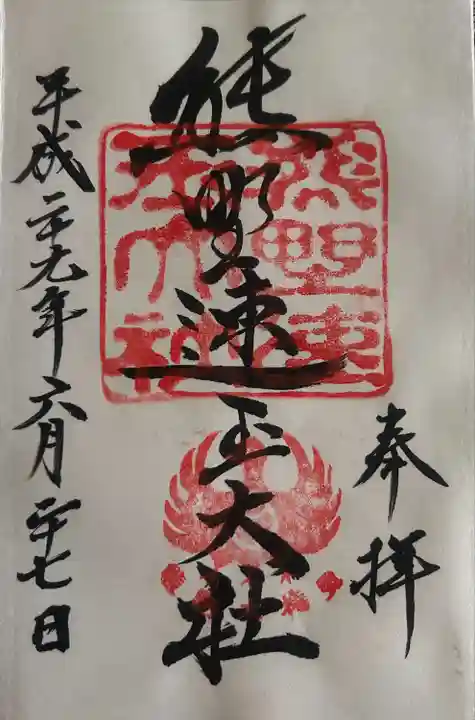 奉拝
熊野速玉大社
平成二十九年六月二十七日
熊野速
玉大社